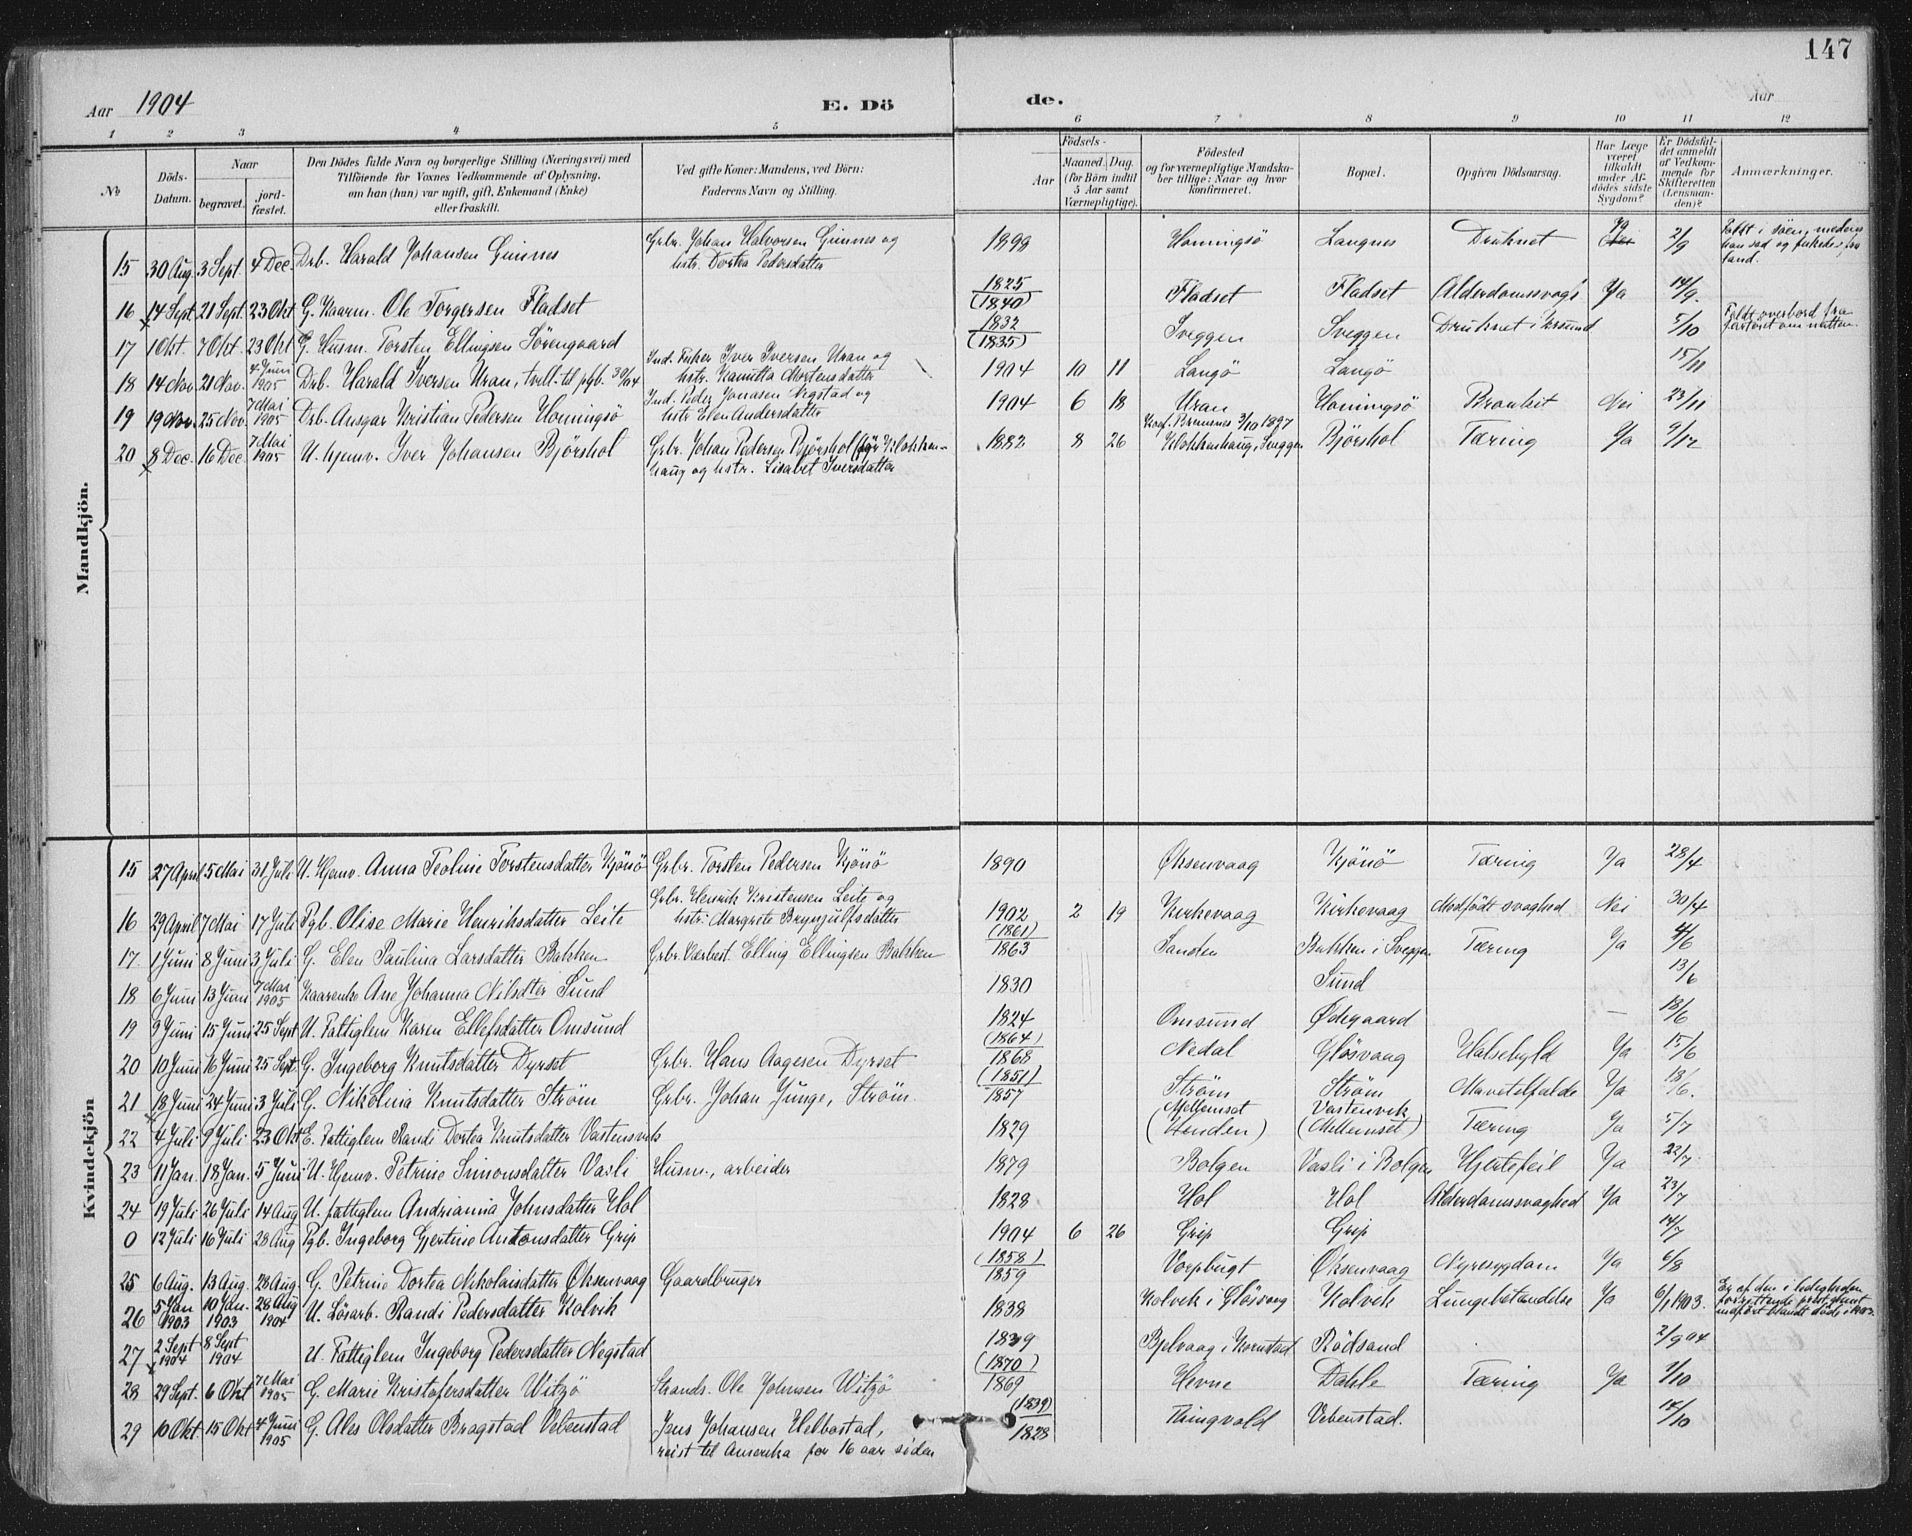 147
Aar 1904
E. Dö
de.
Aar
1 2 3 4 5 6 7 8 9 10 11 12
No
Döds-Datum.
Naar
begravet.
jord-fæstet.
Den Dödes fulde Navn og borgerlige Stilling (Næringsvei) med
Tilföiende for Voxnes Vedkommende af Oplysning,
om han (hun) var ugift, gift, Enkemand (Enke)
eller fraskilt.
Ved gifte Koner: Mandens, ved Börn:
Faderens Navn og Stilling.
Födsels-
Aar
Maaned. Dag.
(for Börn indtil
5 Aar samt
Værnepligtige).
Födested
og for værnepligtige Mandska-
ber tillige: Naar og hvor
konfirmeret.
Bopæl.
Opgiven Dödsaarsag.
Har Læge
været
tilkaldt
under Af-
dödes sidste
Sygdom?
Er Dödsfal-
det anmeldt
af Vedkom-
mende for
Skifteretten
(Lensman-
den)?
Anmærkninger.
Mandkjön.
15 30 Aug. 3 Sept. 4 Dec. Drb. Harald Johansen Ginnes Grbr. Johan Halvorsen Ginnes og hstr. Dortea Pedersdatter 1898 Honningsö Langnes Druknet Nei 2/9 Faldt i söen, medens han sad og fiskede fra land.
16 14 Sept. 21 Sept. 23 Okt G. Kaarm. Ole Torgersen Fladset 1825 (1840) Fladset Fladset Alderdomssvagh. Ya 14/9.
17 1 Okt. 7 Okt. 23 Okt G. Husm. Torsten Ellingsen Sörengaard 1832 (1835) Sveggen Sveggen Druknet i Krsund 5/10 Faldt overbord fra fartöiet om natten.
18 14 Nov. 21 Nov. 4 Juni 1905 Drb. Harald Iversen Uran, tvill. til pgb. 30/04 Ind. Fisker Iver Iversen Uran og hstr. Kanutta Mortensdatter 1904 10 11 Langö Langö 15/11
19 19 Nov. 25 Nov. 7 Mai 1905 Drb. Ansgar Kristian Pedersen Honningsö Ind. Peder Jonasen Negstad og hstr Elen Andersdatter 1904 6 18 Uran Honningsö Bronkit Nei 23/11
20 8 Dec. 16 Dec 7 Mai 1905 U. hjemv. Iver Johansen Björshol Grbr. Johan Pedersen Björshol (för Klokken-haug og hstr. Lisabet Iversdatter 1882 8 26 Konf. Bremsnes 3/10 1897 Klokkenhaug, Sveggen Björshol Tæring Ya 9/12
Kvindekjön
15 27 April 5 Mai 31 Juli U. Hjemv. Anna Teoline Torstensdatter Kjönö Grbr. Torsten Pedersen Kjönö 1890 Øksenvaag Kjönö Tæring Ya 28/4
16 29 April 7 Mai 17 Juli Pgb. Olise Marie Henriksdatter Leite Grbr. Henrik Kristensen Leite og hstr. Margrete Brynjulfsdatter 1902 2 19 Kirkevaag Kirkevaag Medfödt svaghed Nei 30/4
17 1 Juni 8 Juni 3 Juli G. Elen Paulina Larsdatter Bakken Grbr. Værbest. Elling Ellingsen Bakken (1861) 1863 Sanden Bakken i Sveggen Tæring Ya 4/6
18 6 Juni 13 Juni 7 Mai 1905 Kaarenke Ane Johanna Nilsdtter Sund 1830 Sund 13/6
19 9 Juni 15 Juni 25 Sept U. Fattiglem Karen Ellefsdatter Omsund 1824 Omsund Ødegaard – 18/6
20 10 Juni 16 Juni 25 Sept. G. Ingeborg Knutsdatter Dyrset Grbr. Hans Aagesen Dyrset (1864) 1868 Nedal Glösvaag Halsebyld Ya 15/6
21 18 Juni 24 Juni 3 Juli G. Nikolina Knutsdatter Ström Grbr. Johan Junge, Ström. (1851) 1857 Ström Ström Mavetilfælde Ya 18/6.
22 4 Juli 9 Juli 23 Okt E. Fattiglem Randi Dortea Knutsdatter Vastensvik 1829 Mellemset (Henden) Vastenvik (Mellemset) Tæring Ya 5/7
23 11 Jan. 18 Jan. 5 Juni U. Hjemv. Petrine Simonsdatter Vasli Husm., arbeider 1879 Bolgen Vasli i Bolgen Hjertefeil Ya 22/7
24 19 Juli 26 Juli 14 Aug U. fattiglem Andrianna Johnsdatter Hol 1828 Hol Hol Alderdomssvaghed Ya 23/7
0 12 Juli 16 Juli 28 Aug Pgb. Ingeborg Gjertine Antonsdatter Grip 1904 6 26 Grip Grip 14/7
25 6 Aug. 13 Aug. 28 Aug G. Petrine Dortea Nikolaisdatter Øksenvaag Gaardbruger (1858) 1859 Vorpbugt Øksenvaag Nyresygdom Ya 6/8
26 5 Jan 1903 10 Jan. 1903 28 Aug 1904 U. Lösarb. Randi Pedersdatter Kolvik 1838 Kolvik i Glösvag Kolvik Lungebetændelse Ya 6/1 1903. Er af den i ledigheden forrettende prest glemt indfört blandt döde i 1903.
27 2 Sept 1904 8 Sept 1904 U. Fattiglem Ingeborg Pedersdatter Negstad 1839 Bjelvaag i Kornstad Rödsand 2/9 04
28 29 Sept. 6 Okt 7 Mai 1905 G. Marie Kristofersdatter Witzö Strands. Ole Johnsen Witzö (1870) 1869 Hevne Dahle Tæring Ya 1/10
29 10 Okt. 15 Okt 4 Juni 1905 G. Ales Olsdatter Bragstad Vebenstad Jens Johansen Helbostad, reist til Amerika for 16 aar siden (1839) 1828 Tingvold Vebenstad. 14/10